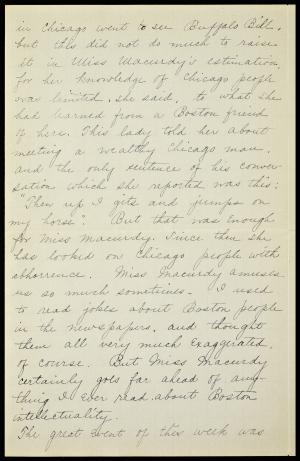 in Chicago went to see Buffalo Bill,
but this did not do much to raise
it in Miss Macurdy's estimation
for her knowledge of Chicago people
was limited, she said, to what she
had learned from a Boston friend
of hers. This lady told her about
meeting a wealthy Chicago man,
and the only sentence of his conver-
sation which she reported was this:
"Then up I gits and jumps on
my horse". But that was enough
for Miss Macurdy. Since then she
has looked on Chicago people with
abhorrence. Miss Macurdy amuses
us so much sometimes. I used
to read jokes about Boston people
in the newspapers, and thought
them all very much exaggerated,
of course. But Miss Macurdy
certainly goes far ahead of any-
thing I ever read about Boston
intellectuality.
The great event of this week was